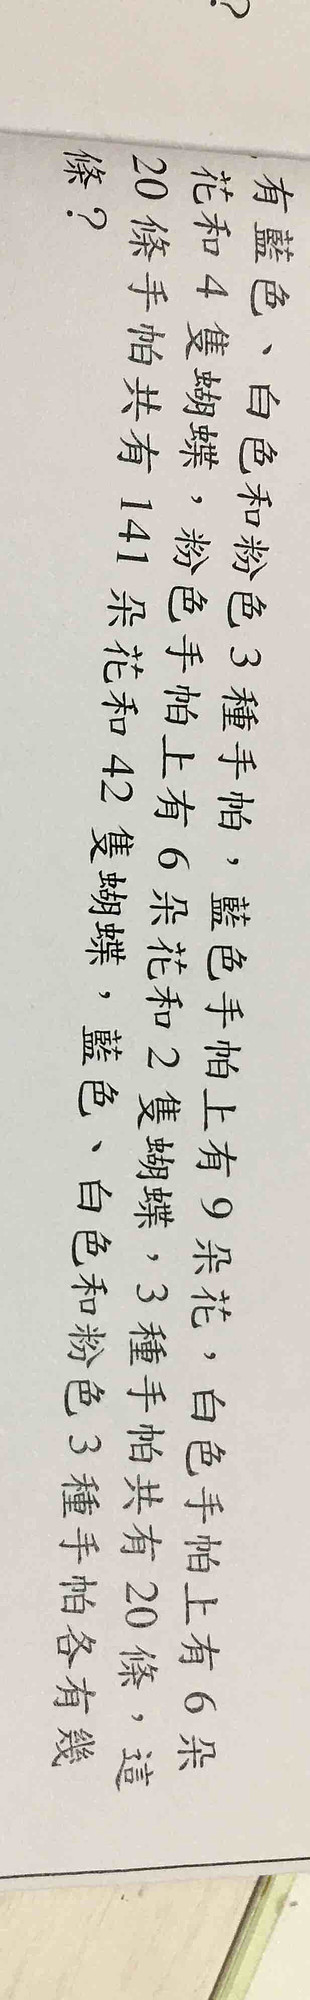 ?
有藍色、白色和粉色3種手帕，藍色手帕上有9朵花，白色手帕上有6朵
花和4隻蝴蝶，粉色手帕上有6朵花和2隻蝴蝶，3種手帕共有20條，這
20條手帕共有141朵花和42隻蝴蝶，藍色、白色和粉色3種手帕各有幾
條？